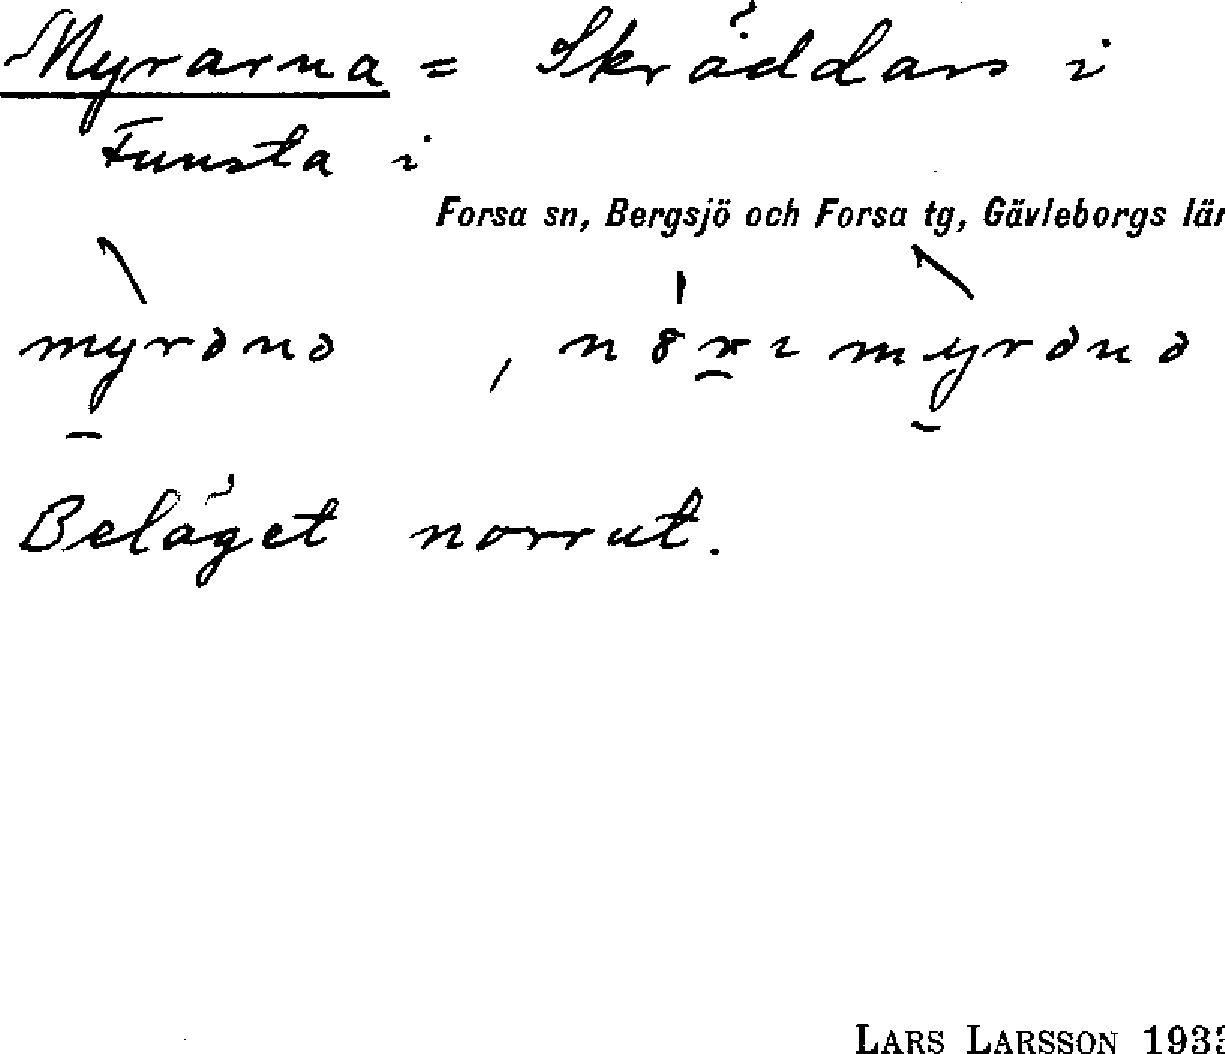 Myrarna = Skräddars i
Funsta i
Forsa sn, Bergsjö och Forsa tg, Gävleborgs län
myrənə, n
Beläget norrut.
LARS LARSSON 193